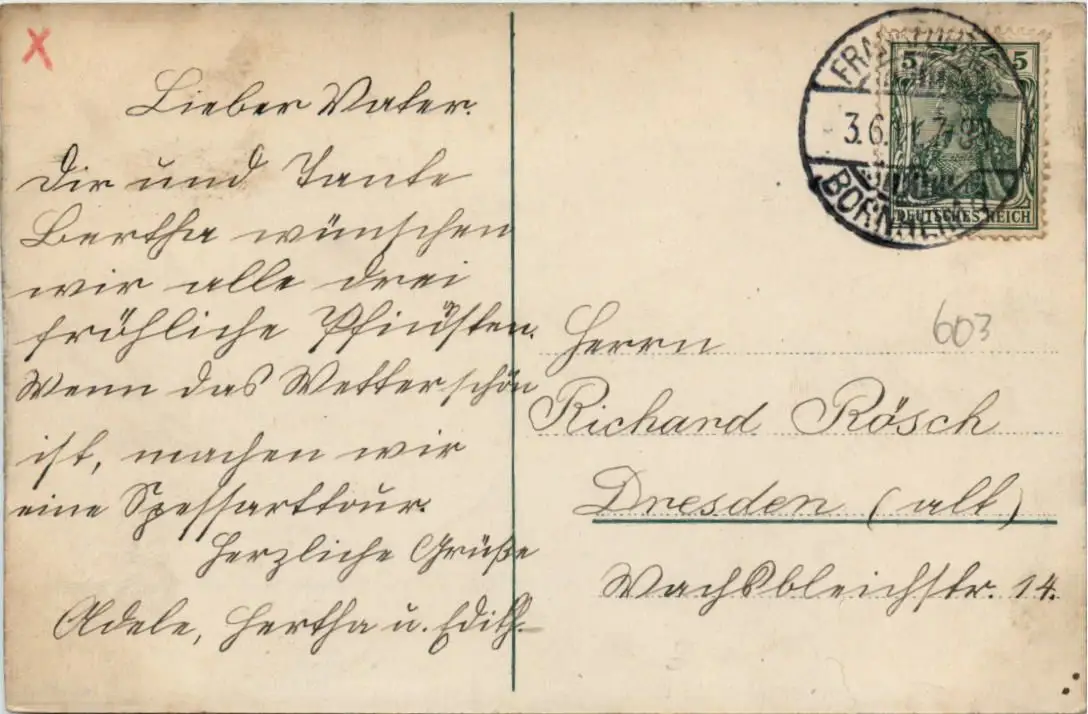 Lieber Vater.
Dir und Tante
Bertha wünschen
wir alle drei
fröhliche Pfingsten.
Wenn das Wetter schön
ist, machen wir
eine Spessarttour.
Herzliche Grüße
Adele, Hertha u. Edith.
5 5
DEUTSCHES REICH
FRANKFURT
3.6.11. 7-8N
BORNHEIM
603
Herrn
Richard Rösch
Dresden (alt)
Wachsbleichstr. 14.